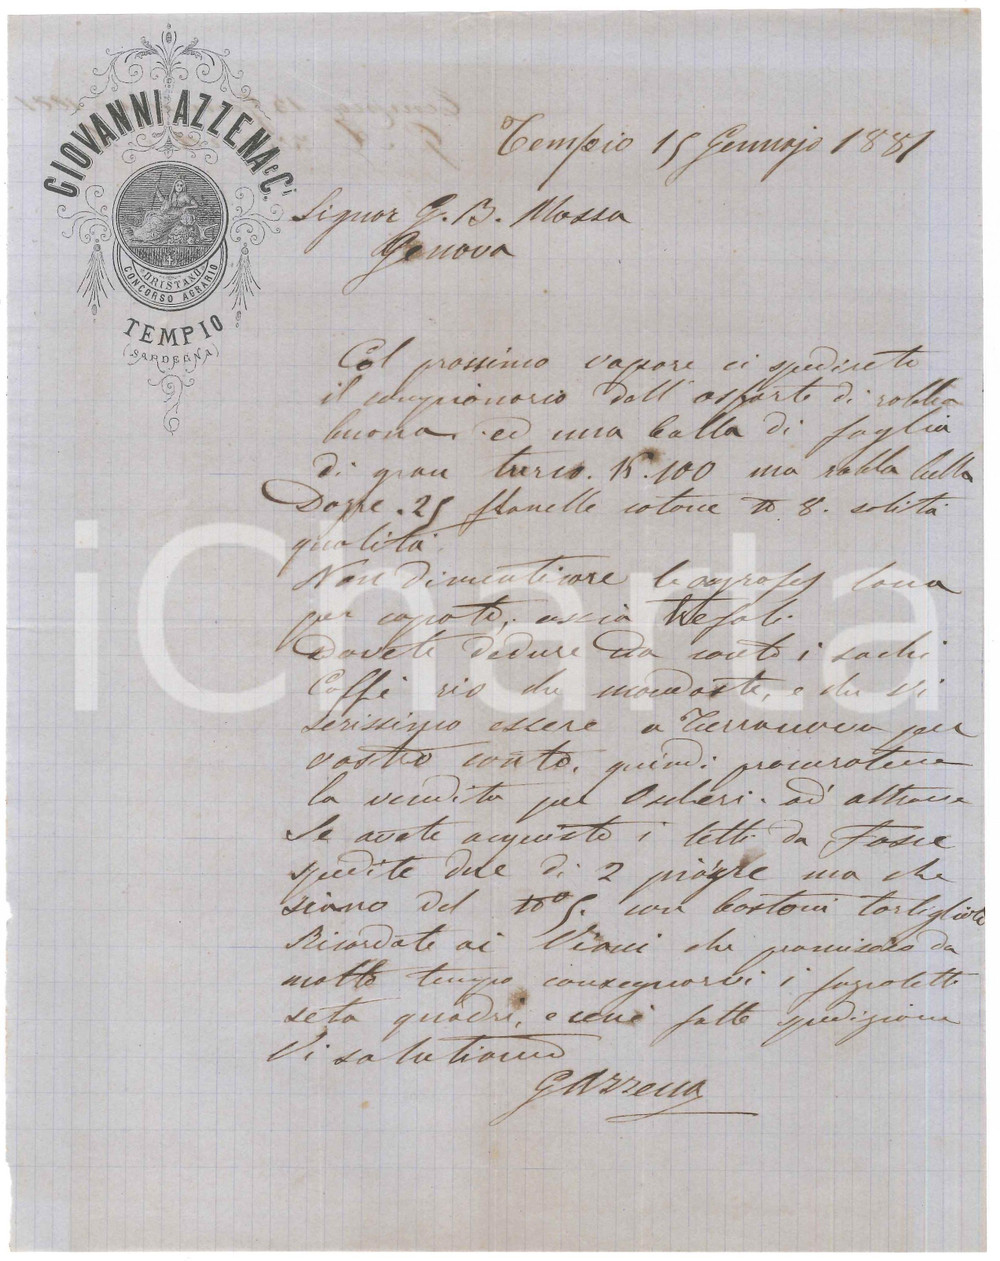 GIOVANNI AZZENA e Ci.
ORISTANO
CONCORSO AGRARIO
TEMPIO
(SARDEGNA)
Tempio 15 Gennajo 1881
Signor G. B. Mossa
Genova
Col prossimo vapore ci spedirete
il campionario dell' di robba
buona. ed una balla di foglia
di gran turco. K. 100 ma robba bella
Dozze. 25 flanelle cotone N 8. solita
qualità.
Non dimenticare lana
per capote,
Dovete dedure Da conto i sachi
Caffè rio che mandaste, e che vi
scrissimo essere a Terranova per
vostro conto. quindi procuratene
la vendita per Oschiri. od altrove
Se avete acquisto i letti da
spedite due di 2 piazze ma che
siano del N° 5. con bastoni tortigliati
Ricordate ai Viani che promisero da
molto tempo consegnarvi i fazoletti
seta quadri, e fatte spedizione
Vi salutiamo
GAzzena
iCharta